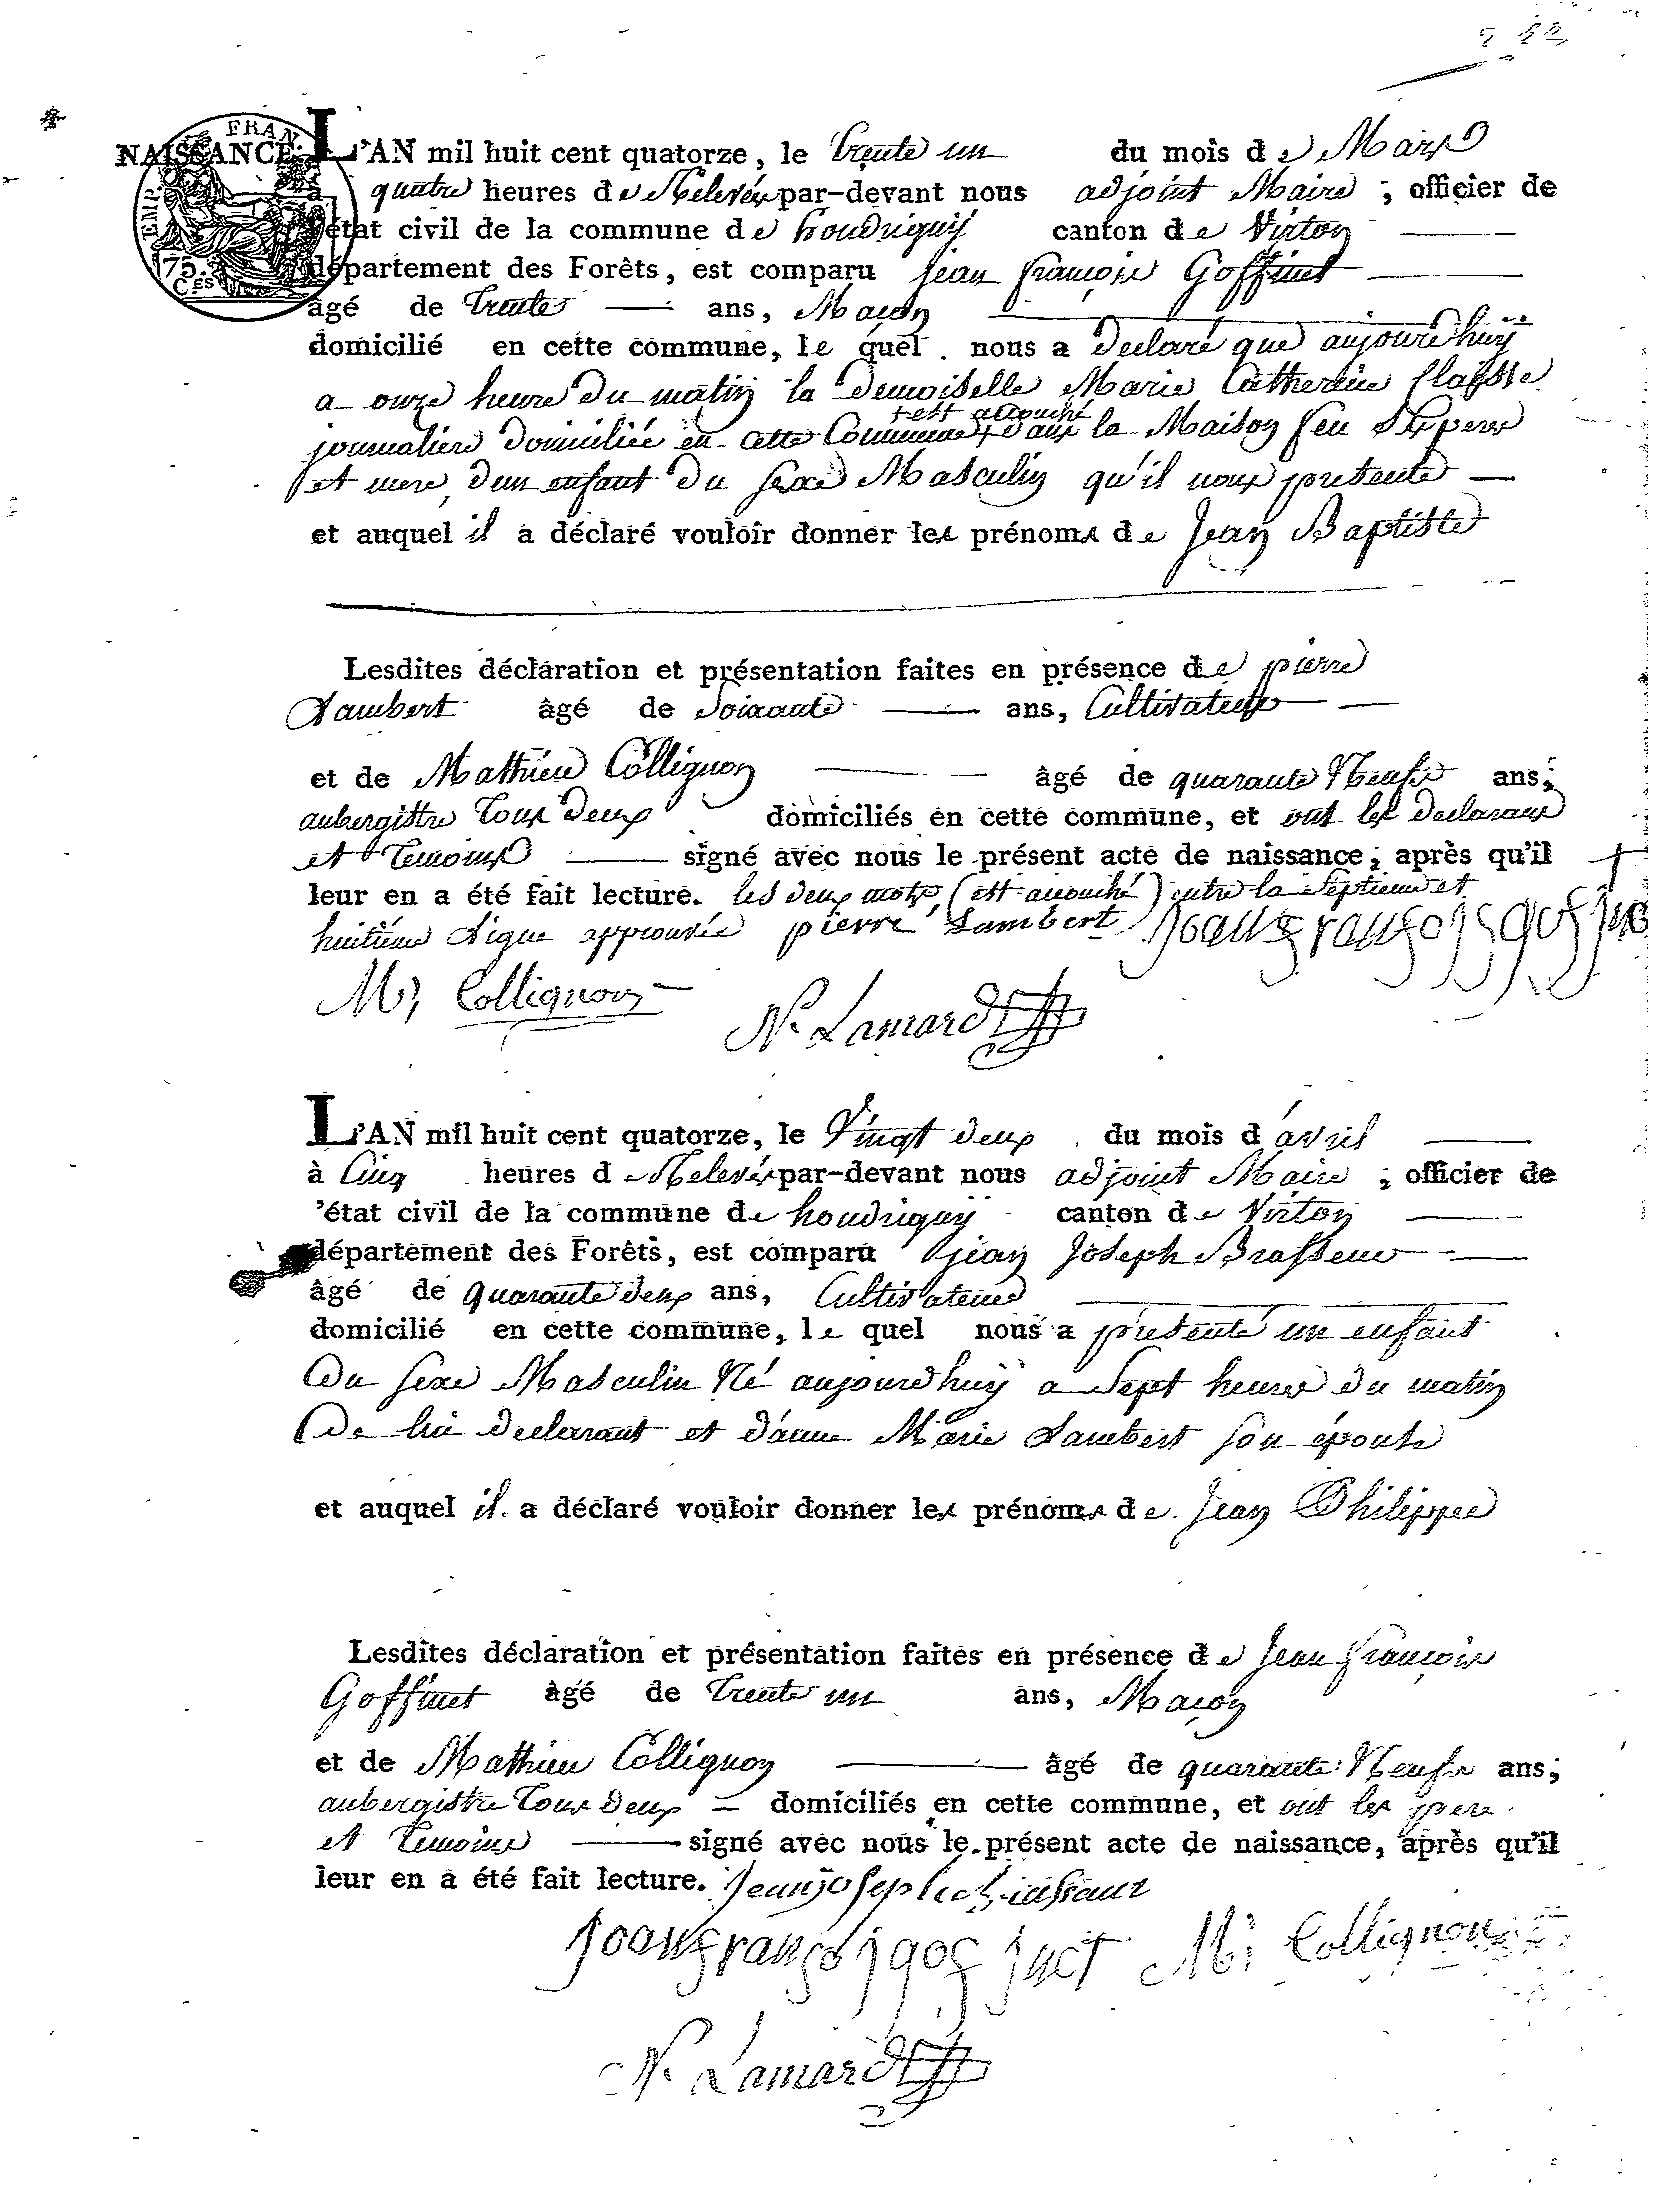 NAISSANCE. L'AN mil huit cent quatorze, le trente un du mois de Mars
à quatre heures de Relevée par-devant nous adjoint Maire, officier de
l'état civil de la commune de houdrigny canton de Virton
département des Forêts, est comparu jean françois Goffinet
âgé de trente ans, Maçon
domicilié en cette commune, le quel nous a declaré que aujourdhuÿ
a onze heure du matin la demoiselle Marie Catherine
+ est accouché
journaliere domiciliée en cette Commune + dans la Maison feu Ses peres
et mere, dun enfant du sexe Masculin qu'il nous presente
et auquel il a déclaré vouloir donner les prénoms de Jean Baptiste
Lesdites déclaration et présentation faites en présence de pierre
Lambert âgé de Soixante ans, Cultivateur
et de Mathieu Collignon âgé de quarante Neufs ans;
aubergiste tous deux domiciliés en cette commune, et ont les declarans
et temoins signé avec nous le présent acte de naissance; après qu'il
leur en a été fait lecture. les deux mots (est accouché) entre la septieme et
huitieme Ligne approuvée pierre Lambert Joanfransoisgoffine
M; Collignon
N. Lamard
L'AN mil huit cent quatorze, le Vingt deux du mois d'avril
à Cinq heures de Relevée par-devant nous adjoint Maire, officier de
'état civil de la commune de houdrigny canton de Virton
département des Forêts, est comparu jean Joseph Brasseur
âgé de quarante deux ans, Cultivateur
domicilié en cette commune, le quel nous a presenté un enfant
du sexe Masculin Né aujourdhuÿ a Sept heures du matin
De lui declarant et d'anne Marie Lambert son épouse
et auquel il a déclaré vouloir donner les prénoms de Jean Philippe
Lesdites déclaration et présentation faites en présence de Jean françois
Goffinet âgé de trente un ans, Maçon
et de Mathieu Collignon âgé de quarante Neufs ans;
aubergiste tous deux domiciliés en cette commune, et ont les pere
et temoins signé avec nous le présent acte de naissance, après qu'il
leur en a été fait lecture. Jean joseph
Joanfransoisgofinet M; Collignon
N. Lamard